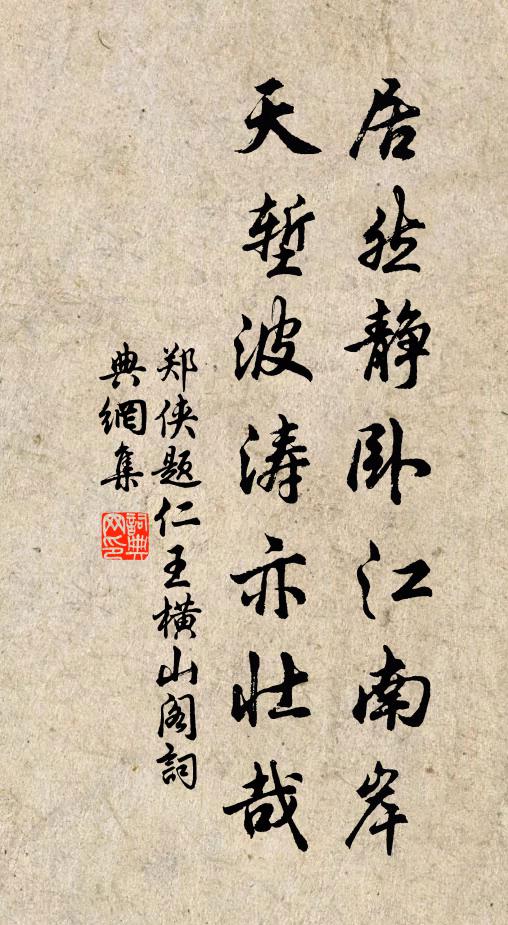 居然静卧江南岸
天堑波涛亦壮哉
郑侠题仁王横山阁詞
典網集
詞典网印